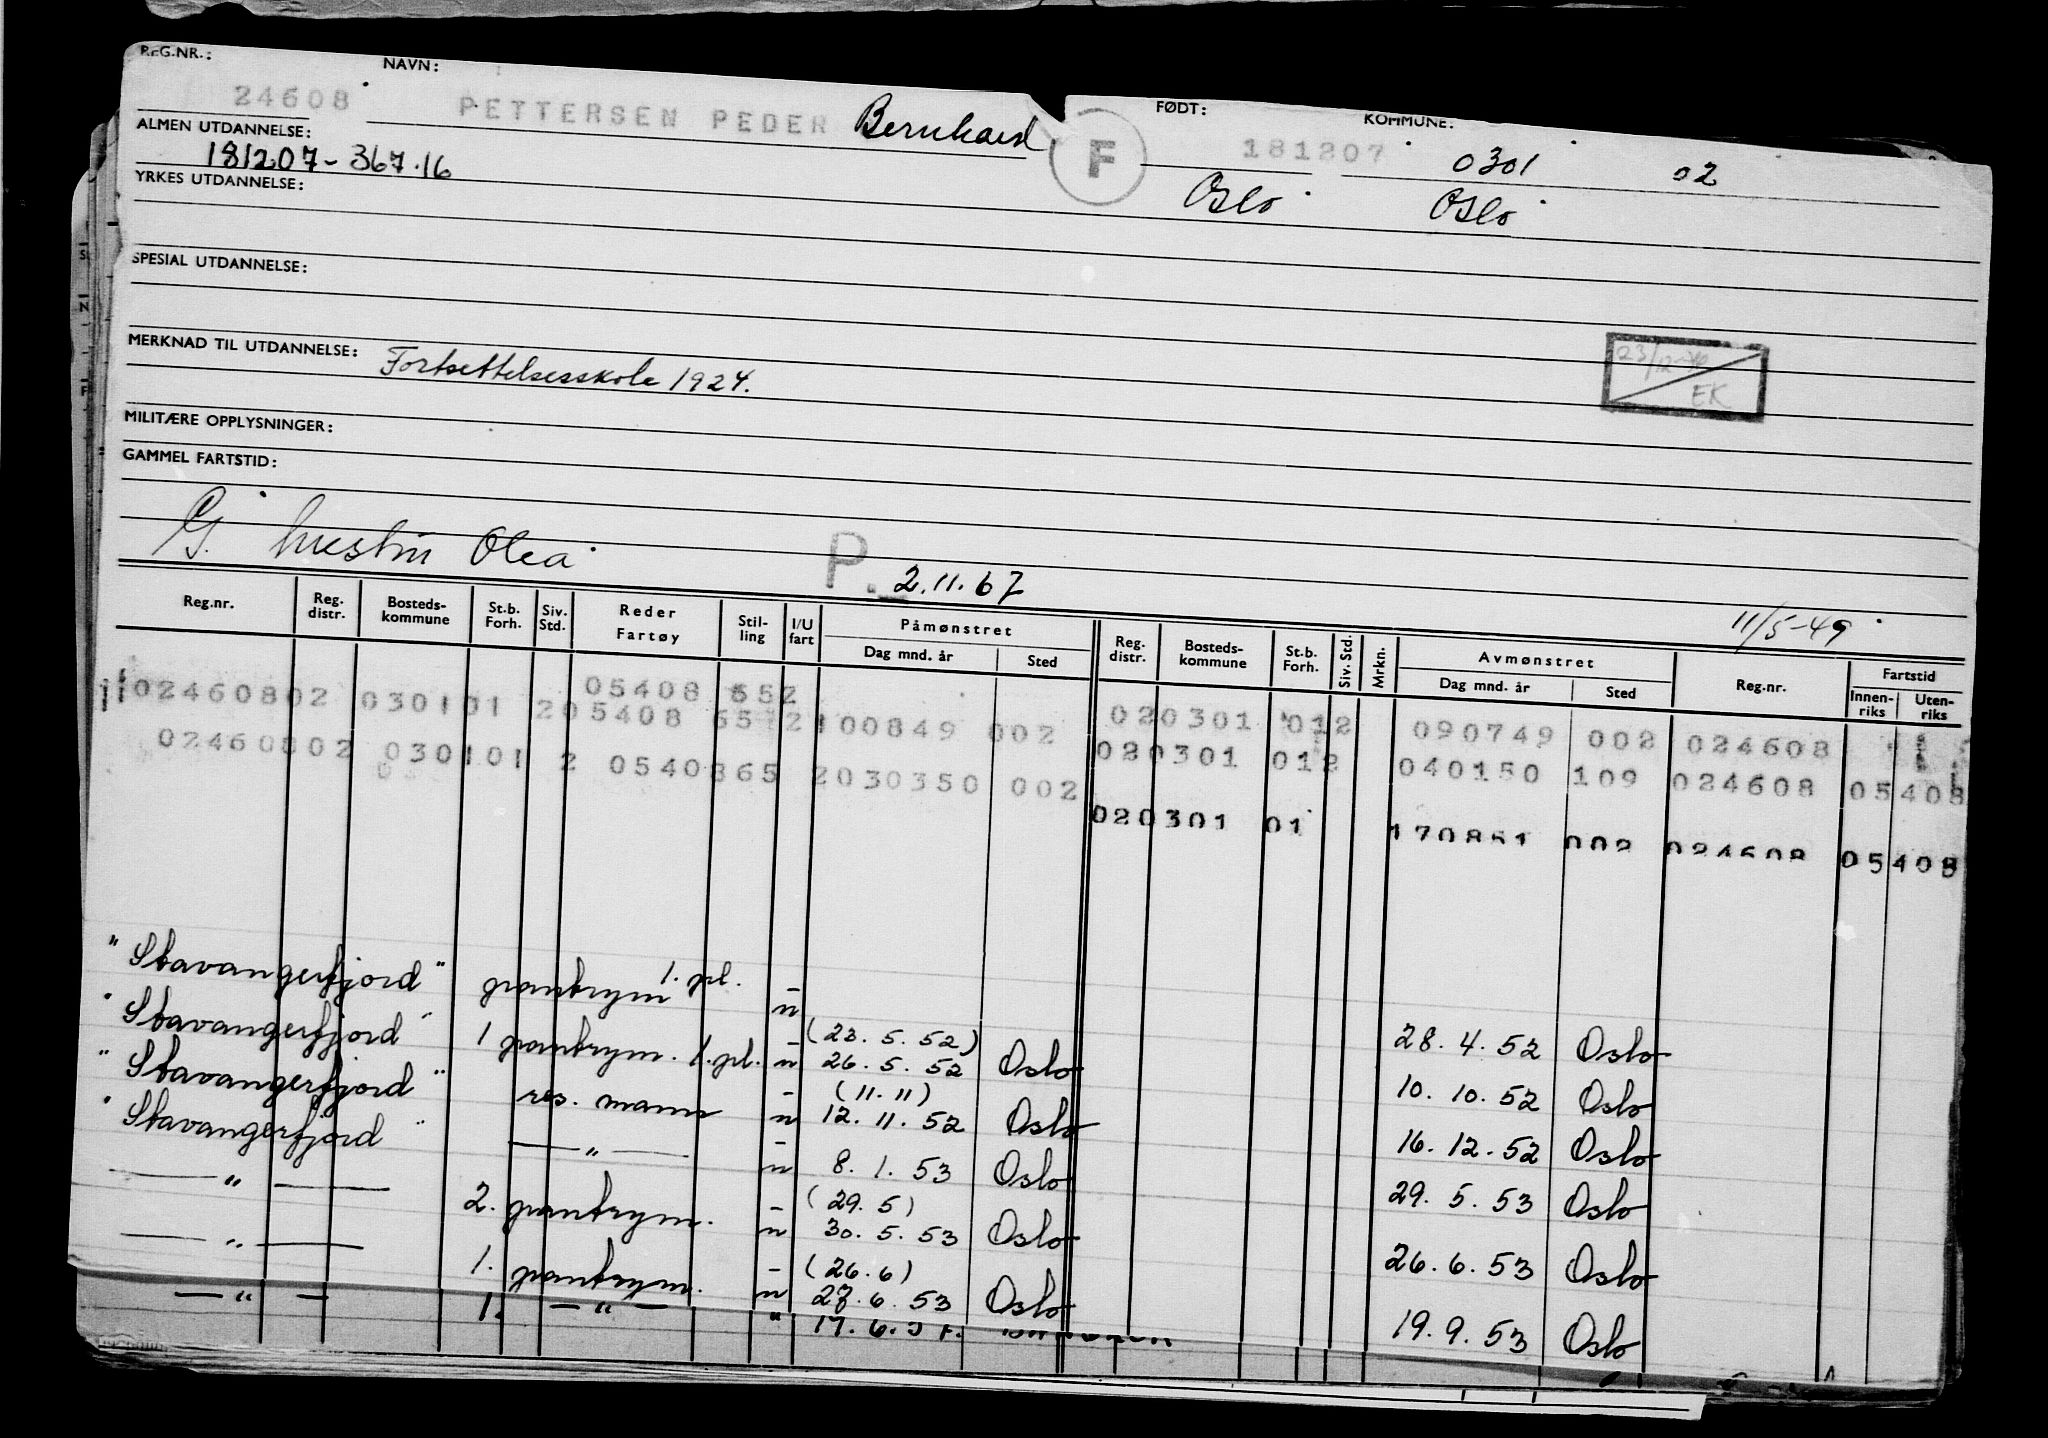 REG.NR.: NAVN: FØDT: KOMMUNE:
24608 PETTERSEN PEDER Bernhard F 181207 0301 02
ALMEN UTDANNELSE:
181207-367.16 Oslo Oslo
YRKES UTDANNELSE:
SPESIAL UTDANNELSE:
MERKNAD TIL UTDANNELSE: Fortsettelsesskole 1924.
23/12-
EK
MILITÆRE OPPLYSNINGER:
GAMMEL FARTSTID:
G. Olea P. 2.11.67
11/5-49
Reg.nr. Reg. distr. Bosteds- kommune St.b. Forh. Siv. Std. Reder Fartøy Stil- ling I/U fart Påmønstret Reg. distr. Bosteds- kommune St.b. Forh. Siv. Std. Mrkn. Avmønstret Reg.nr. Fartstid
Dag mnd. år Sted Dag mnd. år Sted Innen- riks Uten- riks
05408 652
02460802 030101 205408 6572100849 002 020301 012 090749 002 024608
02460802 030101 2 0540865 2030350 002 020301 012 040150 109 024608 05408
020301 01 170851 002 024608 05408
"Stavangerfjord" pantrym 1. pl. - u 28.4.52 Oslo
"Stavangerfjord" 1 pantrym. 1. pl. - u (23.5.52) 26.5.52 Oslo 10.10.52 Oslo
"Stavangerfjord" res. mann - u (11.11) 12.11.52 Oslo 16.12.52 Oslo
"Stavangerfjord" — " — - u 8.1.53 Oslo 29.5.53 Oslo
— " — 2. pantrym. - u (29.5) 30.5.53 Oslo 26.6.53 Oslo
— " — 1. pantrym. - u (26.6) 27.6.53 Oslo 19.9.53 Oslo
— " — 1. — " — " 17.6.